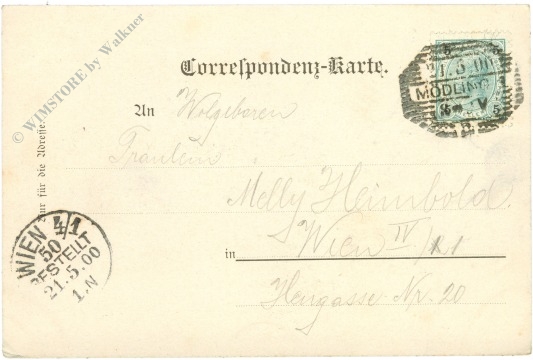 © WIMSTORE by Walkner
Correspondenz-Karte.
21.5.00
MÖDLING
An Wolgeboren
Fräulein
Melly Heimbold
in Wien IV/
Heugasse Nr. 20
Nur für die Adresse.
WIEN 4/1
50
BESTELLT
21.5.00
1.N